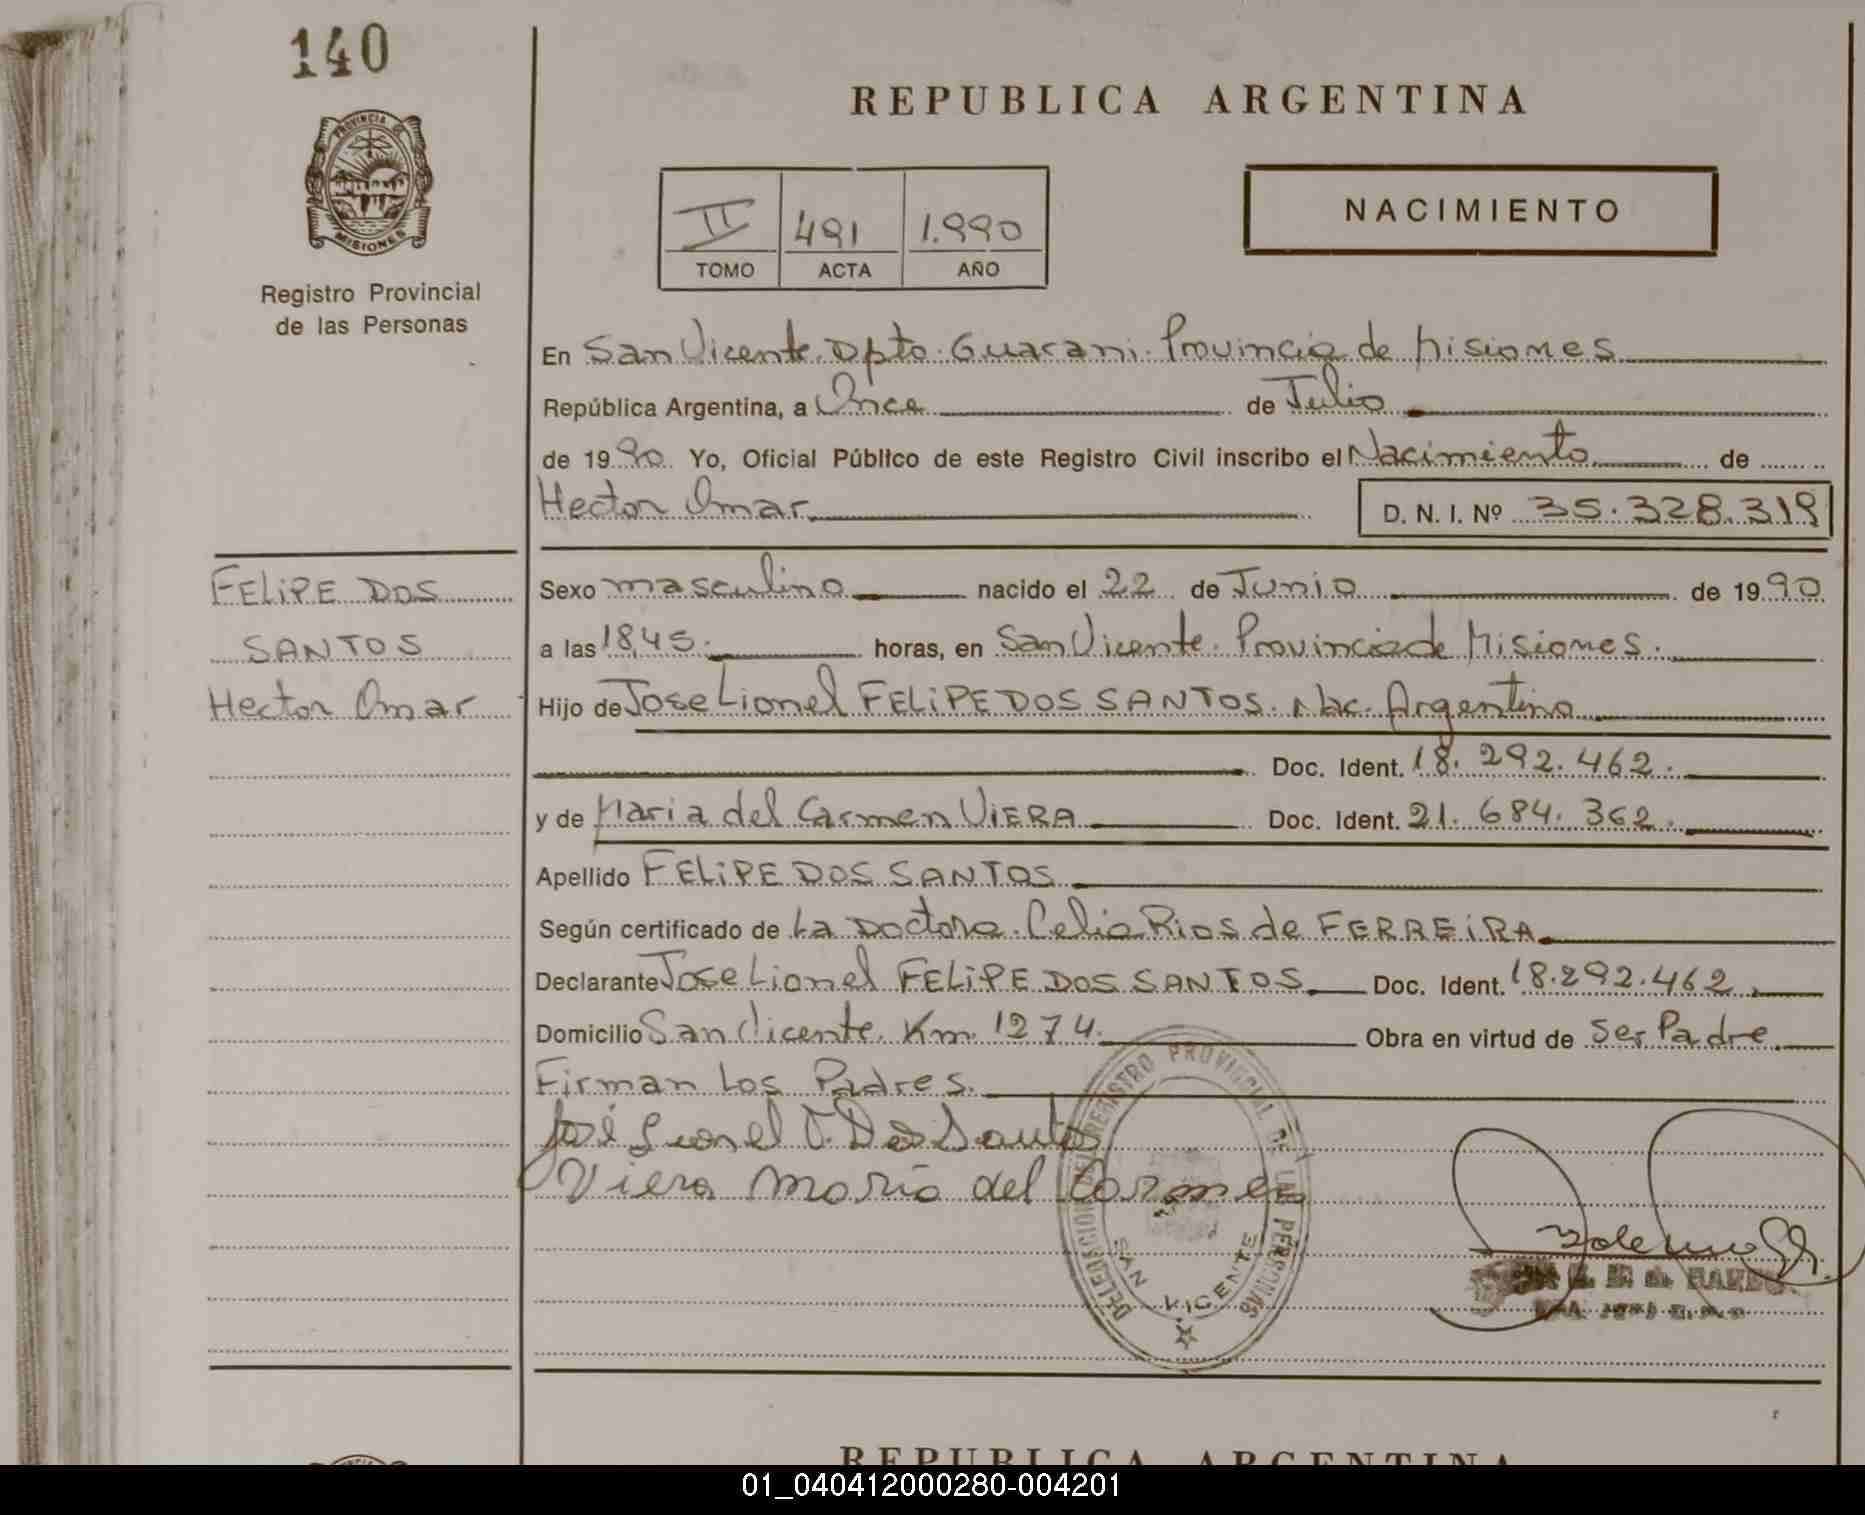 140
REPUBLICA ARGENTINA
PROVINCIA DE
MISIONES
Registro Provincial
de las Personas
II 491 1.990
TOMO ACTA AÑO
NACIMIENTO
En San Vicente. Dpto. Guarani. Provincia de Misiones
República Argentina, a Once de Julio
de 1990. Yo, Oficial Público de este Registro Civil inscribo el Nacimiento de
Hector Omar D. N. I. Nº 35.328.319
FELiPE DOS
SANTOS
Hector Omar
Sexo masculino nacido el 22 de Junio de 1990
a las 18,45. horas, en San Vicente. Provincia de Misiones.
Hijo de Jose Lionel FELiPE DOS SANTOS. Nac. Argentino
Doc. Ident. 18.292.462.
y de Maria del Carmen ViERA Doc. Ident. 21.684.362.
Apellido FELiPE DOS SANTOS
Según certificado de La Doctora. Celia Rios de FERREiRA
Declarante Jose Lionel FELiPE DOS SANTOS Doc. Ident. 18.292.462
Domicilio San Vicente. Km. 1274. Obra en virtud de Ser Padre
Firman Los Padres.
José Lionel F. Dos Santos
Viera Maria del Carmen
DELEGACION DEL REGISTRO PROVINCIAL DE LAS PERSONAS
SAN VICENTE
REPUBLICA ARGENTINA
01_040412000280-004201